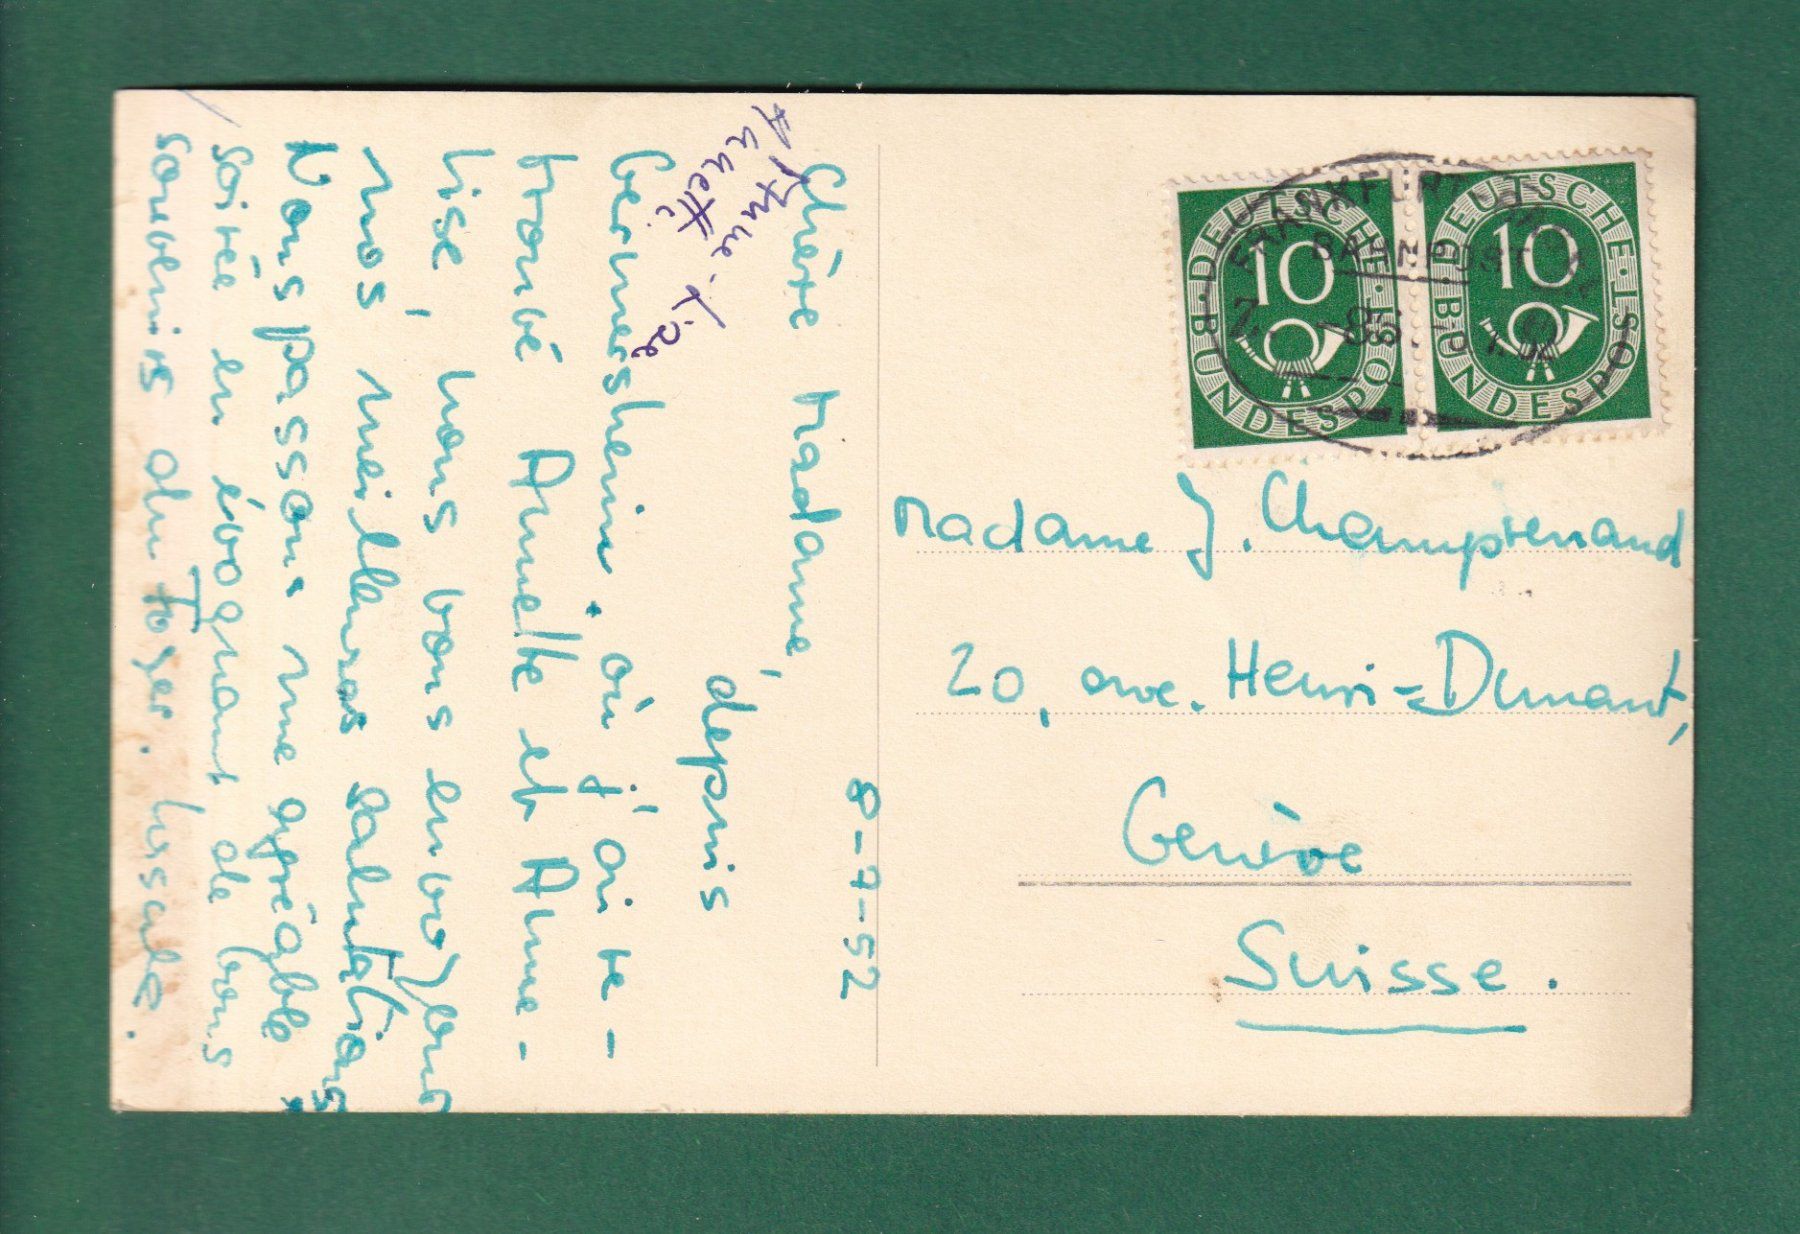 8-7-52
Chère Madame,
depuis
Germersheim, où j'ai re-
trouvé Annette et Anne-
Lise, nous vous envoyons
nos meilleures salutations.
Nous passons une agréable
soirée en évoquant de bons
souvenirs du Foyer.
Anne-Lise
Annette
DEUTSCHE BUNDESPOST
10
DEUTSCHE BUNDESPOST
10
FRANKFURT
BAHNPOST
Madame J. Champrenaud
20, ave. Henri-Dunant,
Genève
Suisse.